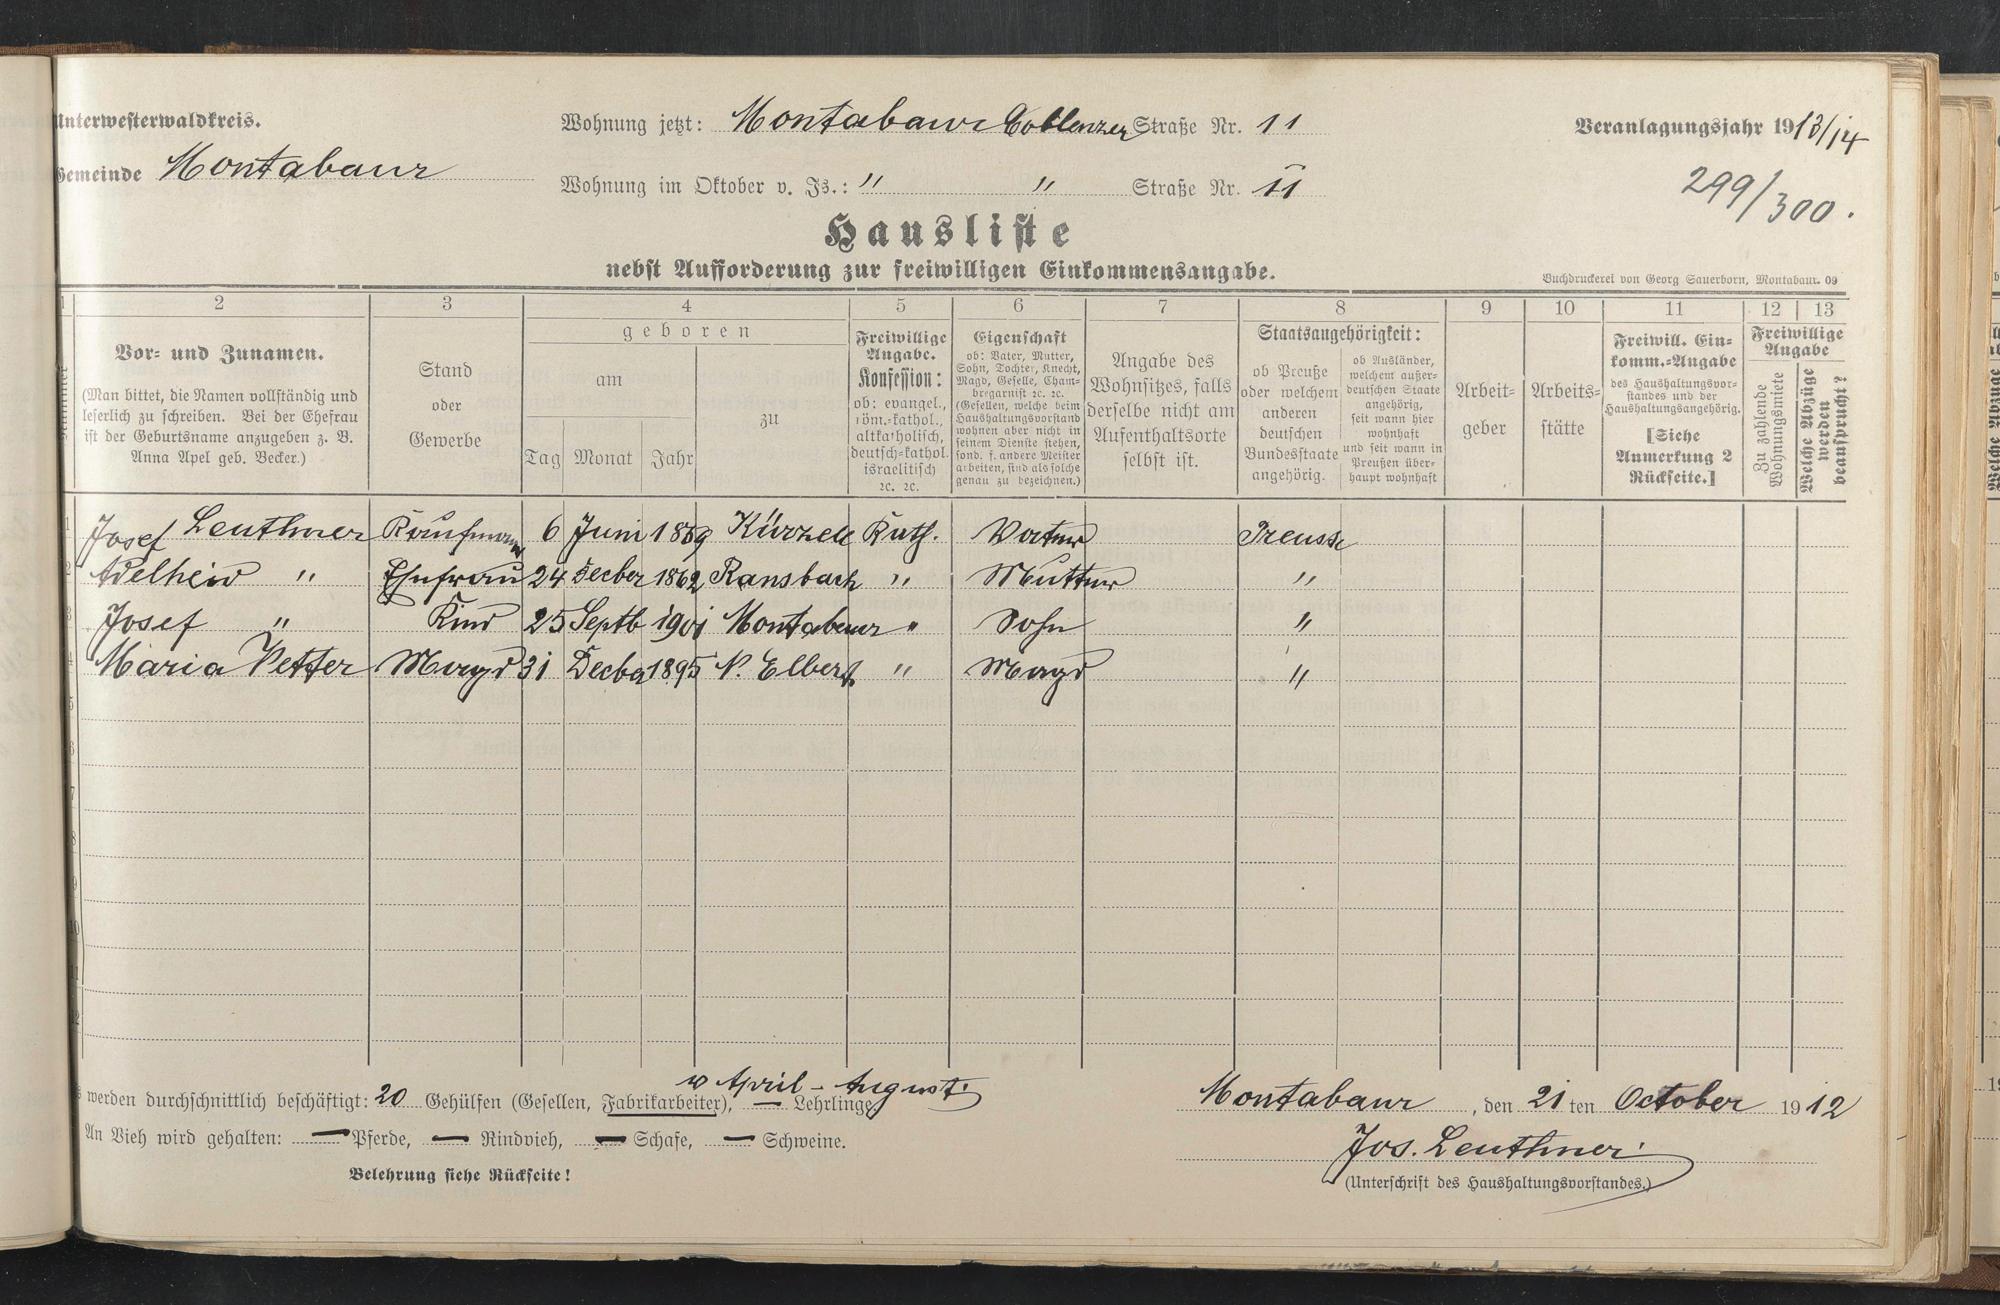 Unterwesterwaldkreis.
Gemeinde Montabaur
Wohnung jetzt: Montabaur Coblenzer Straße Nr. 11
Wohnung im Oktober v. Js.: " " Straße Nr. 11
Veranlagungsjahr 1913/14
299/300.
Hausliste
nebst Aufforderung zur freiwilligen Einkommensangabe.
Buchdruckerei von Georg Sauerborn, Montabaur. 09
1 2 3 4 5 6 7 8 9 10 11 12 13
Nummer
Vor- und Zunamen.
(Man bittet, die Namen vollständig und
leserlich zu schreiben. Bei der Ehefrau
ist der Geburtsname anzugeben z. B.
Anna Apel geb. Becker.)
Stand
oder
Gewerbe
geboren
am
Tag Monat Jahr
zu
Freiwillige
Angabe.
Konfession:
ob: evangel.,
röm.-kathol.,
altkatholisch,
deutsch-kathol.
israelitisch
ec. ec.
Eigenschaft
ob: Vater, Mutter,
Sohn, Tochter, Knecht,
Magd, Geselle, Cham-
bregarnist ec. ec.
(Gesellen, welche beim
Haushaltungsvorstand
wohnen aber nicht in
seinem Dienste stehen,
sond. f. andere Meister
arbeiten, sind als solche
genau zu bezeichnen.)
Angabe des
Wohnsitzes, falls
derselbe nicht am
Aufenthaltsorte
selbst ist.
Staatsangehörigkeit:
ob Preuße
oder welchem
anderen
deutschen
Bundesstaate
angehörig.
ob Ausländer,
welchem außer-
deutschen Staate
angehörig,
seit wann hier
wohnhaft
und seit wann in
Preußen über-
haupt wohnhaft
Arbeit-
geber
Arbeits-
stätte
Freiwill. Ein-
komm.-Angabe
des Haushaltungsvor-
standes und der
Haushaltungsangehörig.
[Siehe
Anmerkung 2
Rückseite.]
Freiwillige
Angabe
Zu zahlende
Wohnungsmiete
Welche Abzüge
werden
beansprucht?
1 Josef Leuthner Kaufmann 6 Juni 1869 Kürzell Kath. Vater Preusse
2 Adelheid " Ehefrau 24 Decber 1862 Ransbach " Mutter "
3 Josef " Kind 25 Septb 1901 Montabaur " Sohn "
4 Maria Vetter Magd 31 Decbr 1895 N. Elbert " Magd "
5
6
7
8
9
10
11
12
v April – August.
werden durchschnittlich beschäftigt: 20 Gehülfen (Gesellen, Fabrikarbeiter), — Lehrlinge.
An Vieh wird gehalten: — Pferde, — Rindvieh, — Schafe, — Schweine.
Belehrung siehe Rückseite!
Montabaur, den 21 ten October 1912
Jos. Leuthner
(Unterschrift des Haushaltungsvorstandes.)